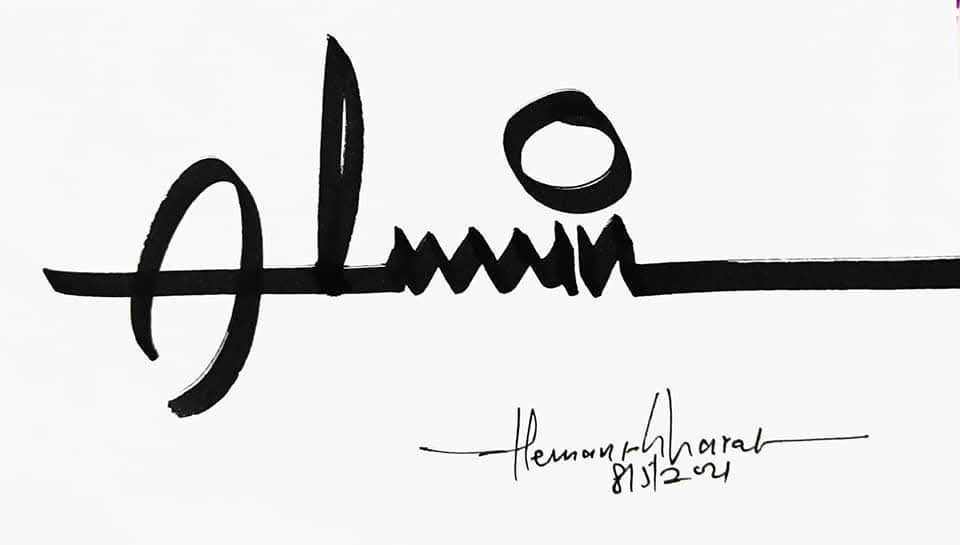 Almin
Hemant Kharat
8/5/2021